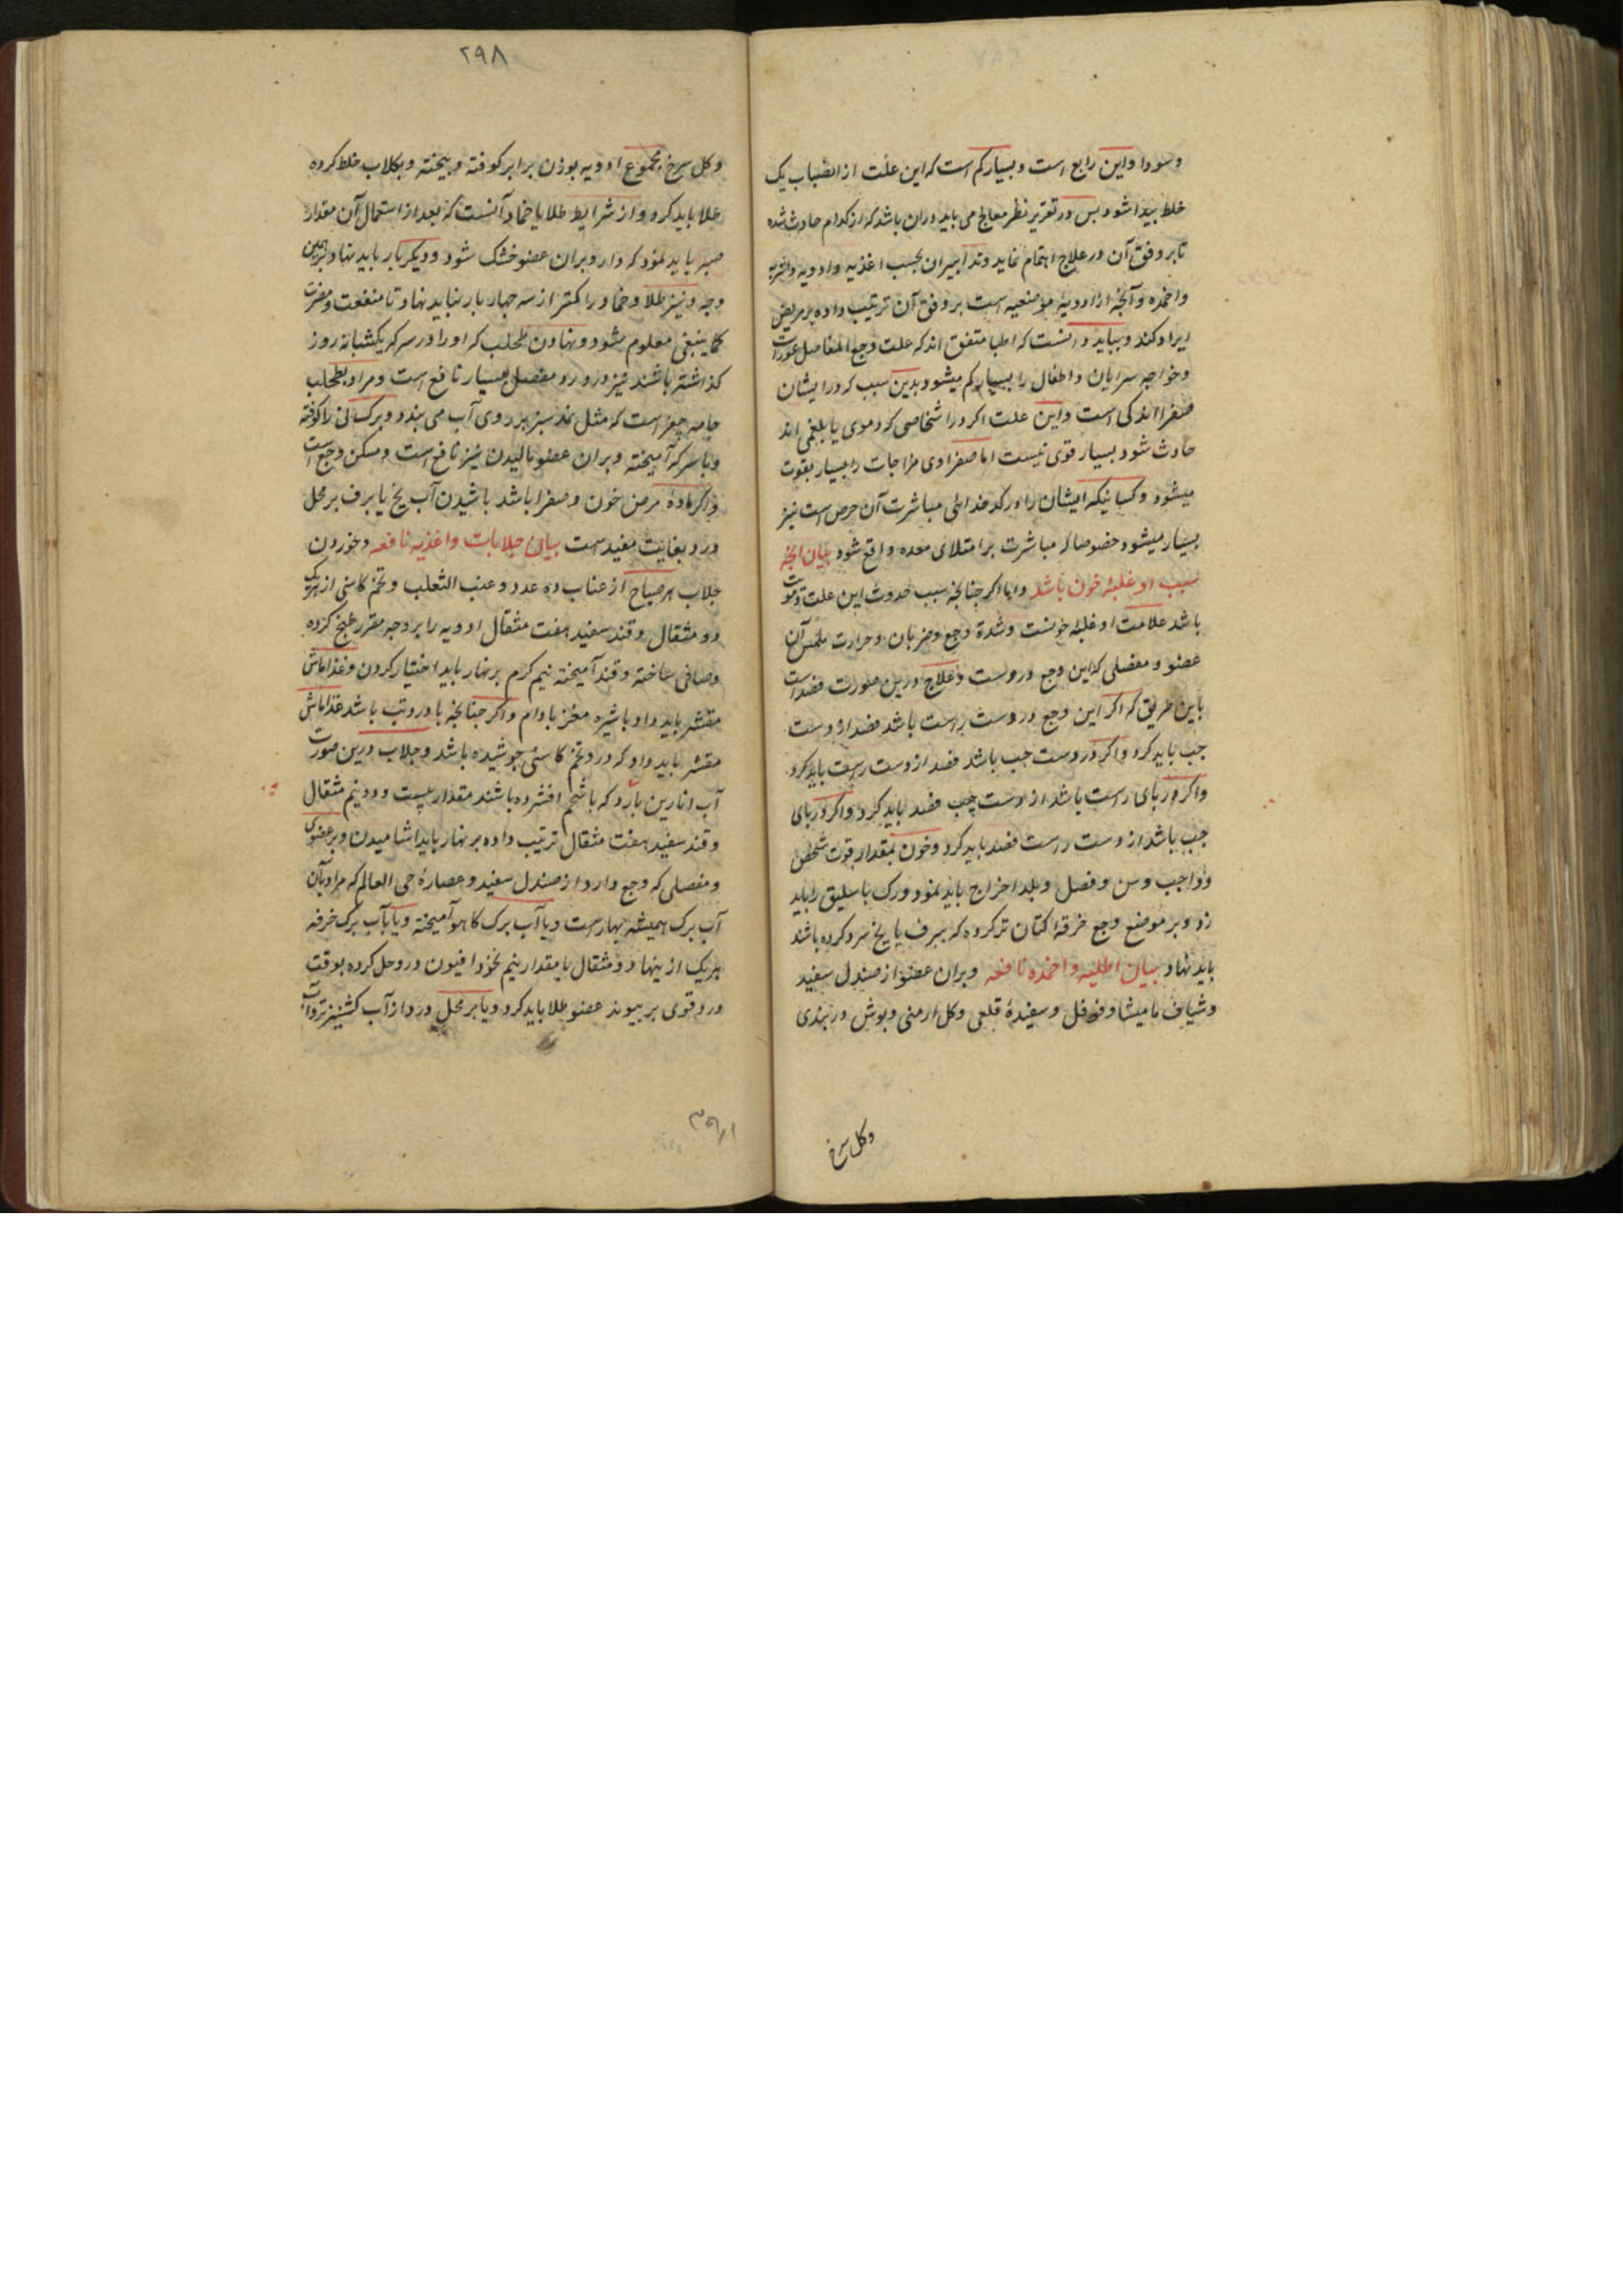 وسودا واین رابع است وبسیار کم است که این علت از انصباب یک
خلط پیدا شود بس در تقریر نظر معالج می باید دران باشد که از کدام حادث شده
تا بر وفق آن در علاج اهتمام نماید وتدابیران بحسب اغذیه وادویه واشربه
واضمده وآنچه از ادویه موضعیه است بر وفق آن ترتیب داده بر مریض
ایراد کند وبباید دانست که اطبا متفق اند که علت وجع المفاصل عورات
وخواجه سرایان واطفال را بسیار کم میشود بدین سبب که در ایشان
صفرا اندکی است واین علت اکر در اشخاصی که دموی یا بلغمی اند
حادث شود بسیار قوی نیست اما صفراوی مزاجات را بسیار بقوت
میشود وکسانیکه ایشان را در کدخدائی مباشرت آن حرص است نیز
بسیار میشود خصوصا که مباشرت بر امتلای معده واقع شود بیان انچه
سبب او غلبه خون باشد واما اکر چنانچه سبب حدوث این علت دمویت
باشد علامت او غلبه خونست وشدة وجع وضربان وحرارت ملمس آن
عضو ومفصلی که این وجع دروست وعلاج درین صورت فصد است
باین طریق که اکر این وجع در دست راست باشد فصد از دست
جب باید کرد واکر در دست جب باشد فصد از دست راست باید کرد
واکر در بای راست باشد از دست چب فصد باید کرد واکر در بای
جب باشد از دست راست فصد باید کرد وخون بمقدار قوت شخص
وواجب وسن وفصل وبلد اخراج باید نمود ورک باسلیق را باید
زد وبر موضع وجع خرقه کتان تر کرده که ببرف یا یخ سرد کرده باشند
باید نهاد بیان اطلیه واضمده نافعه وبران عضو از صندل سفید
وشیاف مامیشا وفوفل وسفیدهٔ قلعی وکل ارمنی وبوش دربندی
وکل سرخ
۲۹۸
وکل سرخ مجموع ادویه بوزن برابر کوفته وبیخته وبکلاب خلط کرده
طلا باید کرد واز شرایط طلا یا ضماد آنست که بعد از استعمال آن مقدار
صبر باید نمود که دارو بران عضو خشک شود ودیکر بار باید نهاد وبر همین
وجه ونیز طلا وضماد را کمتر از سه جهار بار نباید نهاد تا منفعت ومضرت
کما ینبغی معلوم شود ونهادن طحلب که او را در سرکه یکشبانه روز
کذاشته باشند نیز در درد مفصل بسیار نافع است ومراد بطحلب
جامه چغز است که مثل نمد سبز بر روی آب می بندد وبرک نی را کوفته
وبا سرکه آمیخته وبران عضو مالیدن نیز نافع است ومسکن وجع است
واکر ماده مرض خون وصفرا باشد باشیدن آب یخ یا برف بر محل
درد بغایت مفید است بیان جلابات واغذیه نافعه وخوردن
جلاب هر صباح از عناب ده عدد وعنب الثعلب وتخم کاسنی از هر یک
دو مثقال وقند سفید هفت مثقال ادویه را بر وجه مقرر طبخ کرده
وصافی ساخته وقند آمیخته نیم کرم بر نهار باید اختیار کردن وغذا ماش
مقشر باید داد با شیره مغز بادام واکر چنانچه با درد تب باشد غذا ماش
مقشر باید داد که در و تخم کاسنی جوشیده باشد وجلاب درین صورت
آب انارین بارد که با شحم افشرده باشند مقدار بیست ودو نیم مثقال
وقند سفید هفت مثقال ترتیب داده بر نهار باید اشامیدن وبر عضوی
ومفصلی که وجع دارد از صندل سفید وعصارهٔ حی العالم که مراد بآن
آب برک همیشه بهارست ویا آب برک کاهو آمیخته ویا بآب برک خرفه
هر یک از ینها دو مثقال با مقدار نیم نخود افیون در و حل کرده بوقت
درد قوی بر بیوند عضو طلا باید کرد ویا بر محل درد از آب کشنیز تر وآب